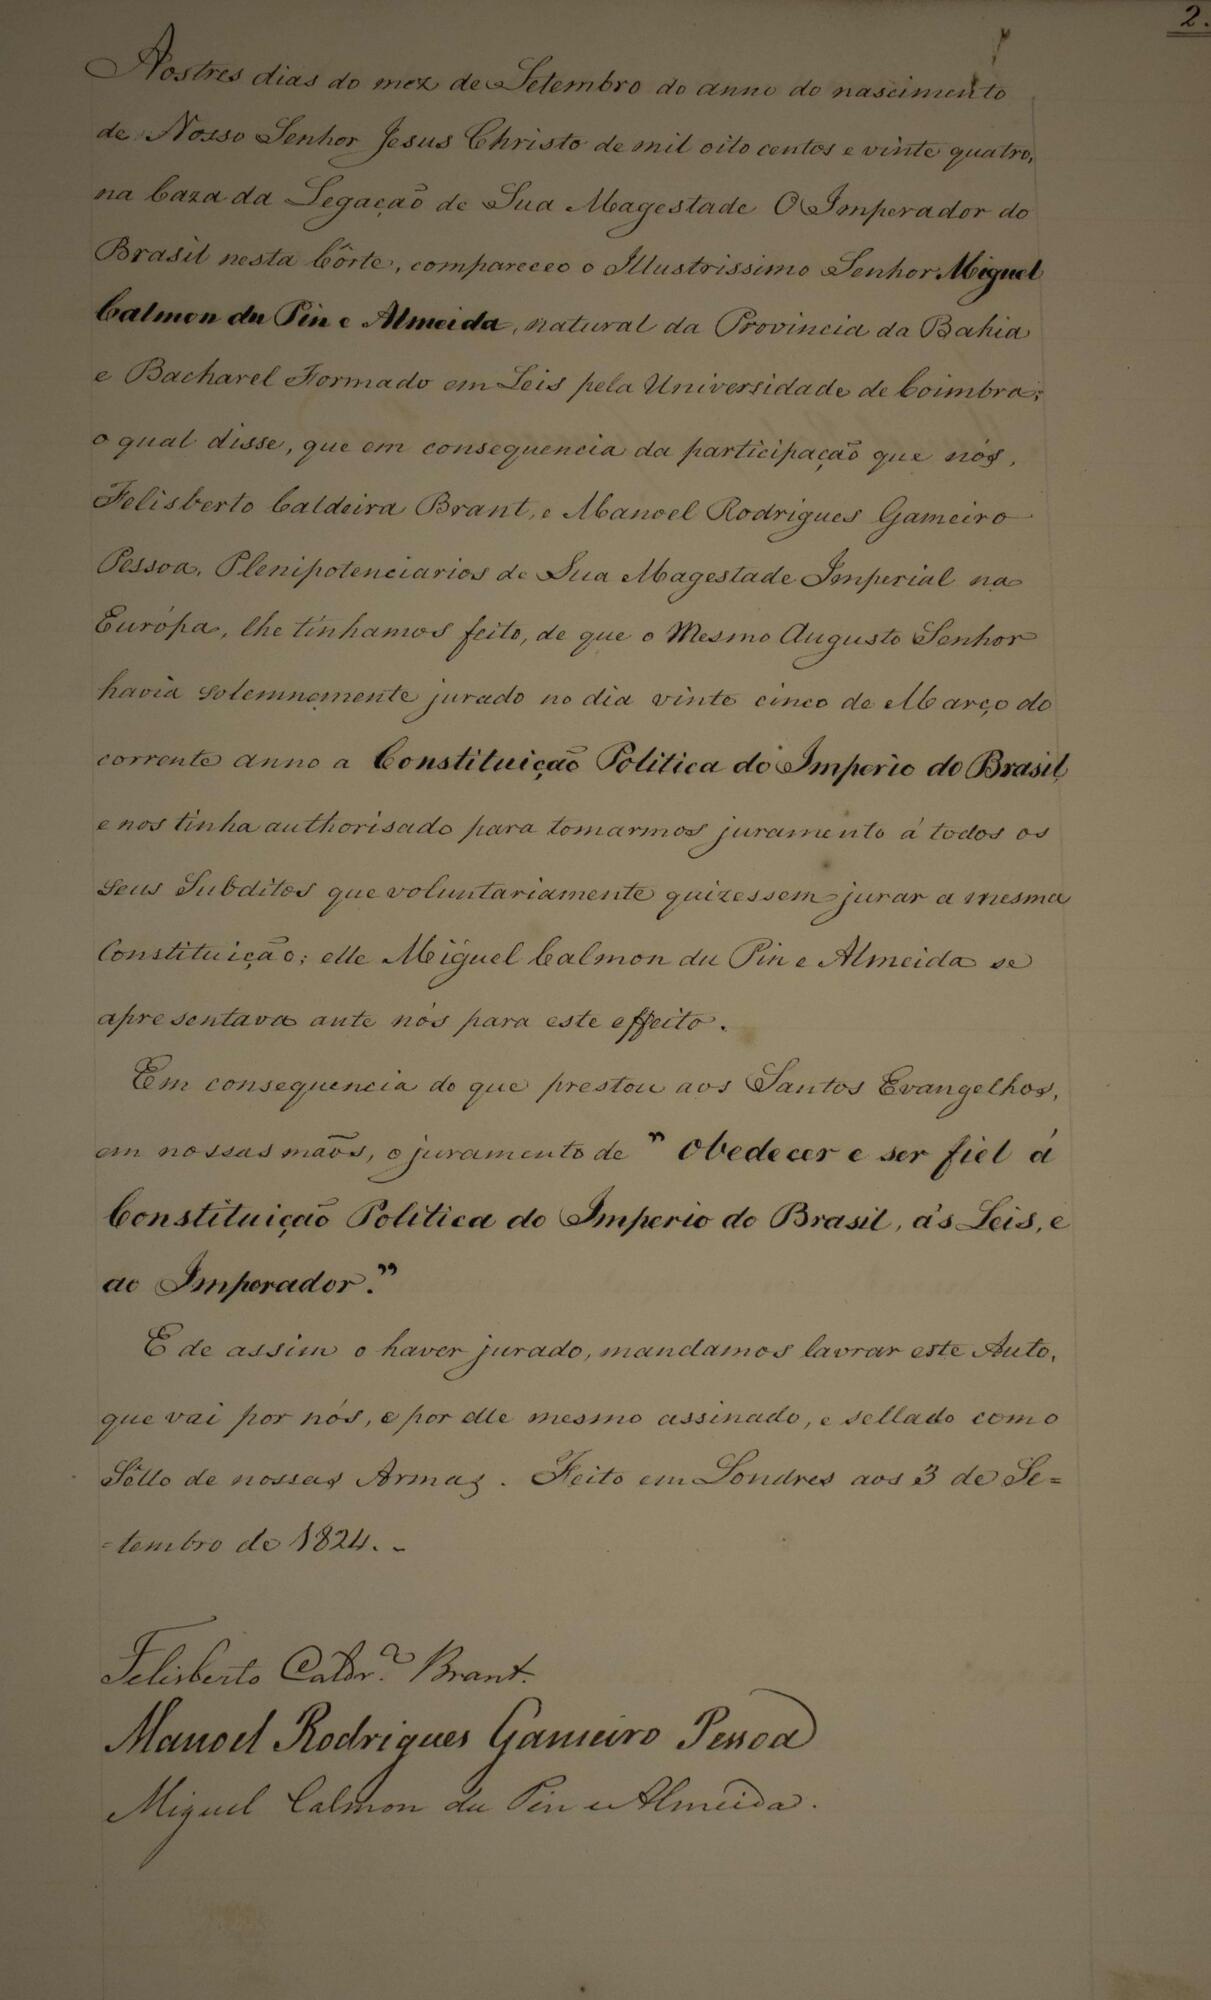 2.
Aos tres dias do mez de Setembro do anno do nascimento
de Nosso Senhor Jesus Christo de mil oito centos e vinte quatro,
na Caza da Legação de Sua Magestade O Imperador do
Brasil nesta Côrte, compareceo o Illustrissimo Senhor Miguel
Calmon du Pin e Almeida, natural da Provincia da Bahia
e Bacharel Formado em Leis pela Universidade de Coimbra;
o qual disse, que em consequencia da participação que nós,
Felisberto Caldeira Brant, e Manoel Rodrigues Gameiro
Pessoa, Plenipotenciarios de Sua Magestade Imperial na
Európa, lhe tinhamos feito, de que o Mesmo Augusto Senhor
havia solemnemente jurado no dia vinte cinco de Março do
corrente anno a Constituição Politica do Imperio do Brasil,
e nos tinha authorisado para tomarmos juramento á todos os
seus Subditos que voluntariamente quizessem jurar a mesma
Constituição; elle Miguel Calmon du Pin e Almeida se
apresentava ante nós para este effeito.
Em consequencia do que prestou aos Santos Evangelhos,
em nossas maõs, o juramento de " obedecer e ser fiel á
Constituição Politica do Imperio do Brasil, ás Leis, e
ao Imperador."
E de assim o haver jurado, mandamos lavrar este Auto,
que vai por nós, e por elle mesmo assinado, e sellado como
Sêllo de nossas Armas. Feito em Londres aos 3 de Se=
=tembro de 1824. -
Felisberto Caldr.ª Brant.
Manoel Rodrigues Gameiro Pessoa
Miguel Calmon du Pin e Almeida.